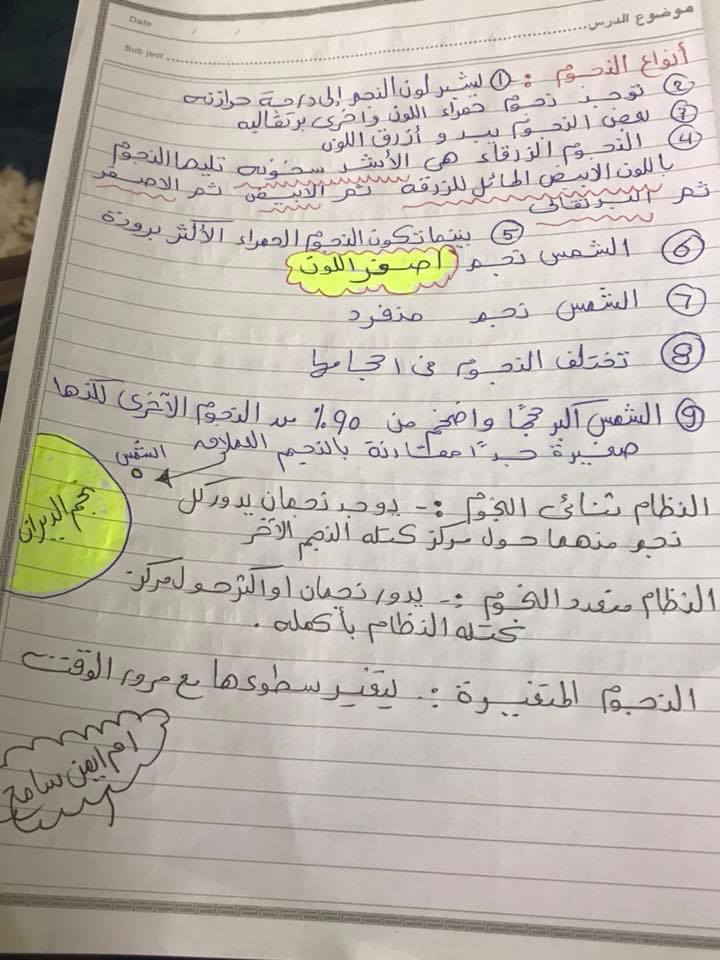 موضوع الدرس
Date / /
Subject
أنواع النجوم : ① يشير لون النجم إلى درجة حرارته
② توجد نجوم حمراء اللون واخرى برتقاليه
③ بعض النجوم بيد و أزرق اللون
④ النجوم الزرقاء هى الأشد سخونه تليها النجوم
باللون الابيض المائل للزرقه ثم الابيض ثم الاصفر
ثم البرتقالى
⑤ بينما تكون النجوم الحمراء الأكثر برودة
⑥ الشمس نجم اصفر اللون
⑦ الشمس نجم منفرد
⑧ تختلف النجوم فى احجامها
⑨ الشمس اكبر حجمًا واضخم من 90% من النجوم الآخرى لكنها
صغيرة جدًا مقارنة بالنجم العملاقه
الشمس
نجم الدبران
النظام ثنائى النجوم :- يوجد نجمان يدور كل
نجو منهما حول مركز كتله النجم الآخر
النظام متعدد النجوم :- يدور نجمان او اكثر حول مركز
كتله النظام بأكمله .
النجوم المتغيرة :- يتغير سطوعها مع مرور الوقت
ام ايمن سامح